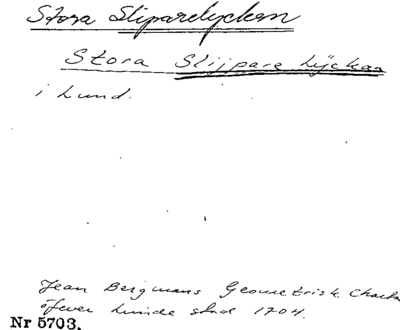 Stora Sliparelyckan
Stora Slijpare Lÿckan
i Lund.
Jean Bergmans Geometrisk Charta
öfver Lunde stad 1704.
Nr 5703.